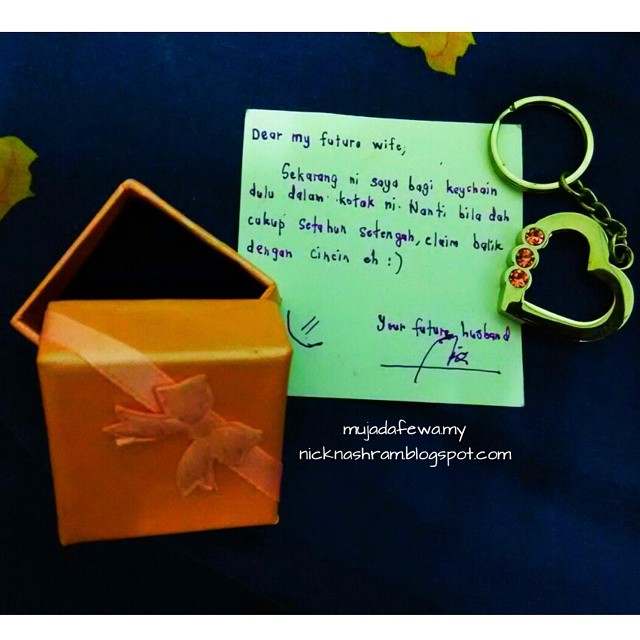 Dear my future wife,
Sekarang ni saya bagi keychain
dulu dalam kotak ni. Nanti bila dah
cukup setahun setengah, claim balik
dengan cincin eh :)
Your future husband
mujadafewa.my
nicknashram.blogspot.com